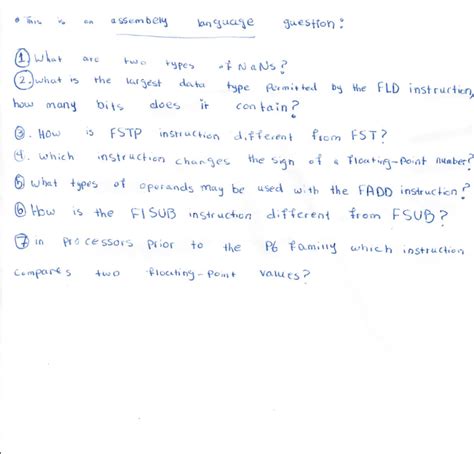 • This is an assembely language question:
① What are two types of NaNs?
②. what is the largest data type permitted by the FLD instruction,
how many bits does it contain?
③. How is FSTP instruction different from FST?
④. which instruction changes the sign of a floating-point number?
⑤ what types of operands may be used with the FADD instruction?
⑥ How is the FISUB instruction different from FSUB?
⑦ in processors prior to the P6 familly which instruction
compares two floating-point values?